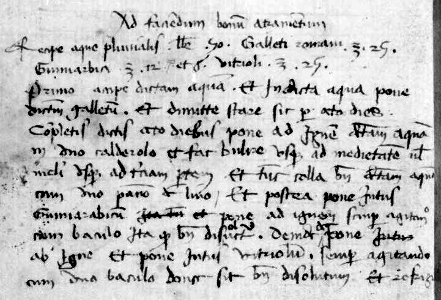 Ad faciendum bonum atramentum
Recipe aque pluvialis lb. 50. Galleti romani ℥. 25.
Gumiarbica ℥. 12. et 6. vitrioli ℥. 25.
Primo accipe dictam aquā. Et In dicta aqua pone
dictum galletū. Et dimitte stare sic per octo dies
Cōpletis dictis octo diebus pone ad Igne dictam aquā
in uno calderolo et fac bulire usq ad medietatē vl
meli usq ad tertiam ptem Et tūc colla bn dictam aquā
cum uno panno de lino. Et postea pone Intus
Gumiarabicū et pone ad ignem semp agitando
cum baculo Ita q bn dissolvet. Demū pone
ab Igne Et pone Intus vitriolū. Semp agitando
cum uno baculo donec sit bn disolutum Et